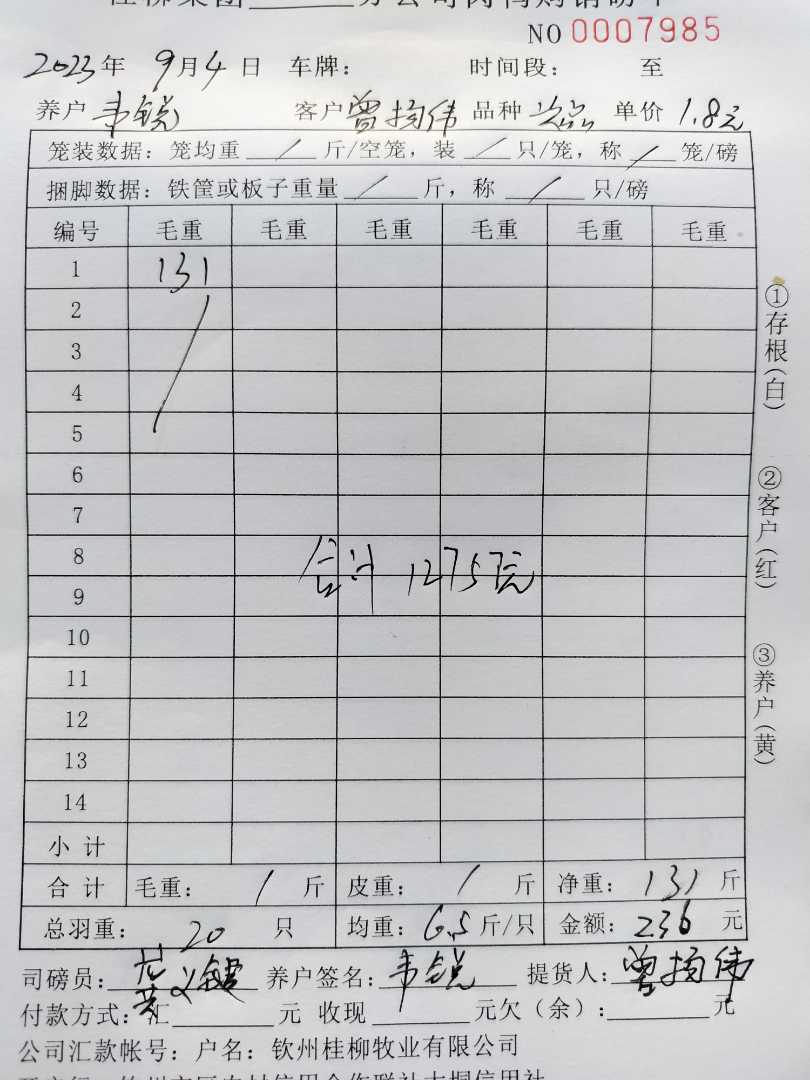 NO 0007985
2023年 9月4日 车牌： 时间段： 至
养户 韦锐 客户 曾扬伟 品种 次品 单价 1.8元
笼装数据：笼均重 / 斤/空笼，装 / 只/笼，称 / 笼/磅
捆脚数据：铁筐或板子重量 / 斤，称 / 只/磅
编号 毛重 毛重 毛重 毛重 毛重 毛重
1 131
2
3
4
5
6
7
8
合计 1275元
9
10
11
12
13
14
小计
合计 毛重： / 斤 皮重： / 斤 净重： 131 斤
总羽重： 20 只 均重： 6.5 斤/只 金额： 236 元
司磅员： 养户签名： 韦锐 提货人： 曾扬伟
付款方式：汇 元 收现 元欠（余）： 元
公司汇款帐号：户名：钦州桂柳牧业有限公司
①存根（白）
②客户（红）
③养户（黄）